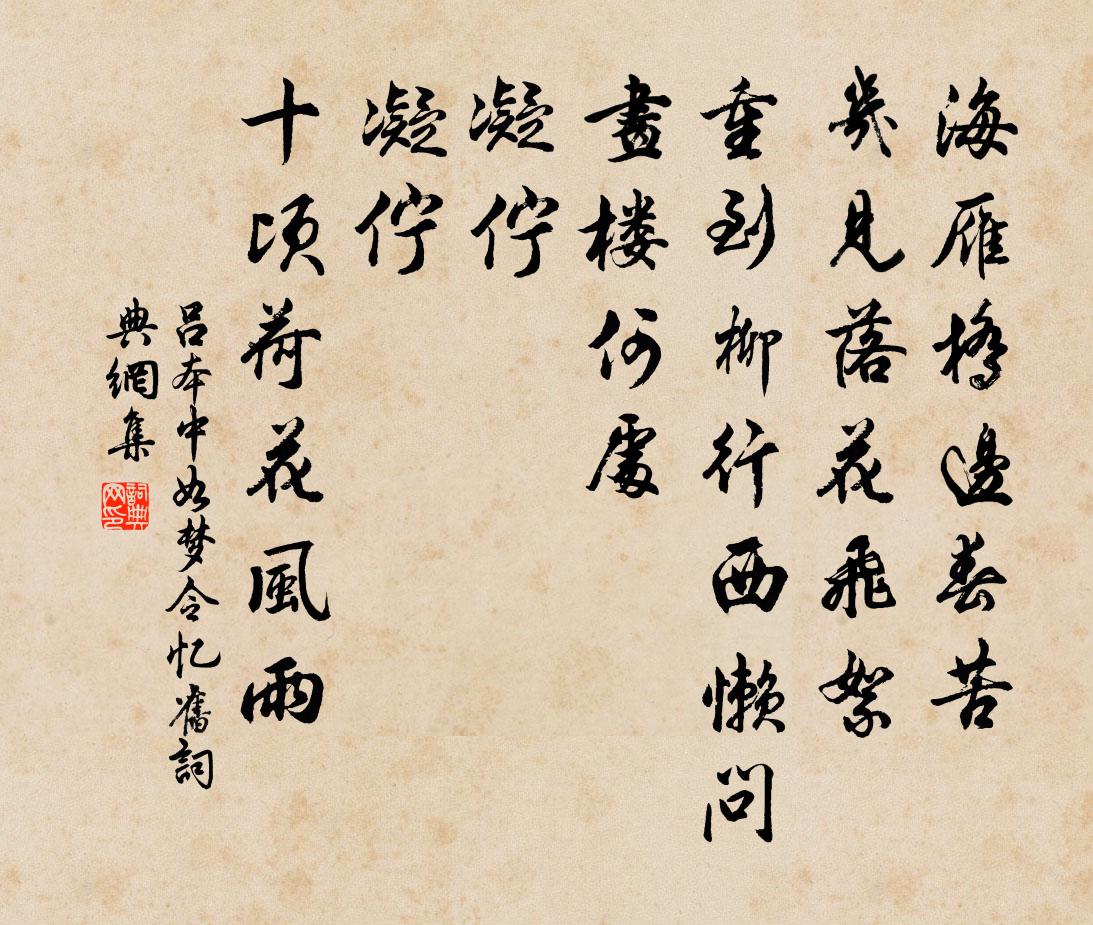 海雁橋邊春苦
幾見落花飛絮
重到柳行西懶問
畫楼何處
凝佇
凝佇
十頃荷花風雨
吕本中如梦令忆舊詞
典網集
詞典网印